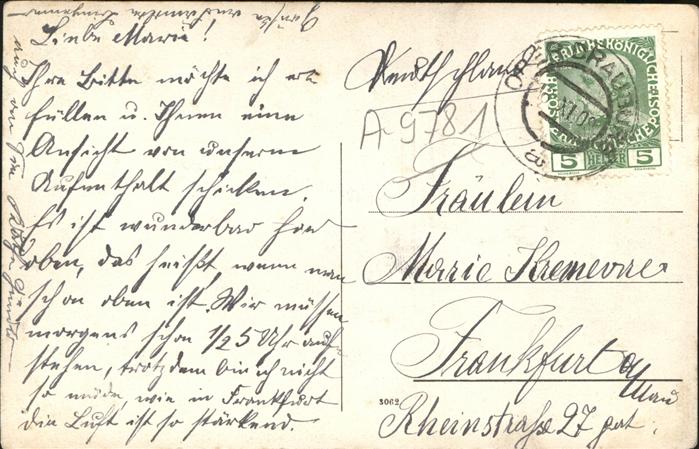 Liebe Marie!
Ihre Bitte möchte ich er-
füllen u. Ihnen eine
Ansicht von unserm
Aufenthalt schicken.
Es ist wunderbar hier
oben, das heißt, wenn man
schon oben ist. Wir müssen
morgens schon 1/2 5 Uhr auf-
stehen, trotzdem bin ich nicht
so müde, wie in Frankfurt
die Luft ist so stärkend.
Deutschland
A 9781
Fräulein
Marie
Frankfurt a/Main
Rheinstraße 27 part.
3062
5 HELLER 5